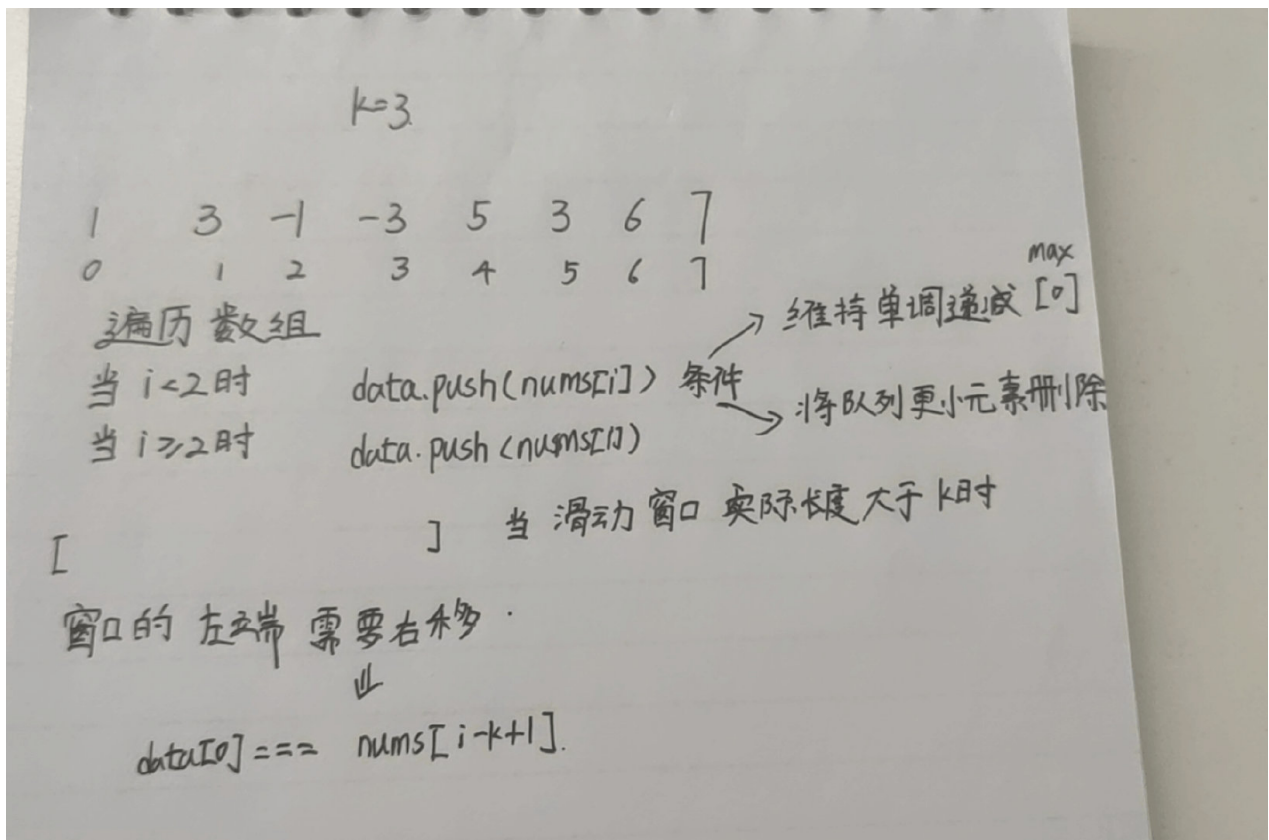 k=3.
1 3 -1 -3 5 3 6 7
0 1 2 3 4 5 6 7
max
遍历数组
维持单调递减 [0]
当 i<2时 data.push(nums[i]) 条件
将队列更小元素删除
当 i≥2时 data.push(nums[i])
[ ] 当 滑动 窗口 实际长度大于 k时
窗口的 左端 需要右移.
⇓
data[0]=== nums[i-k+1].